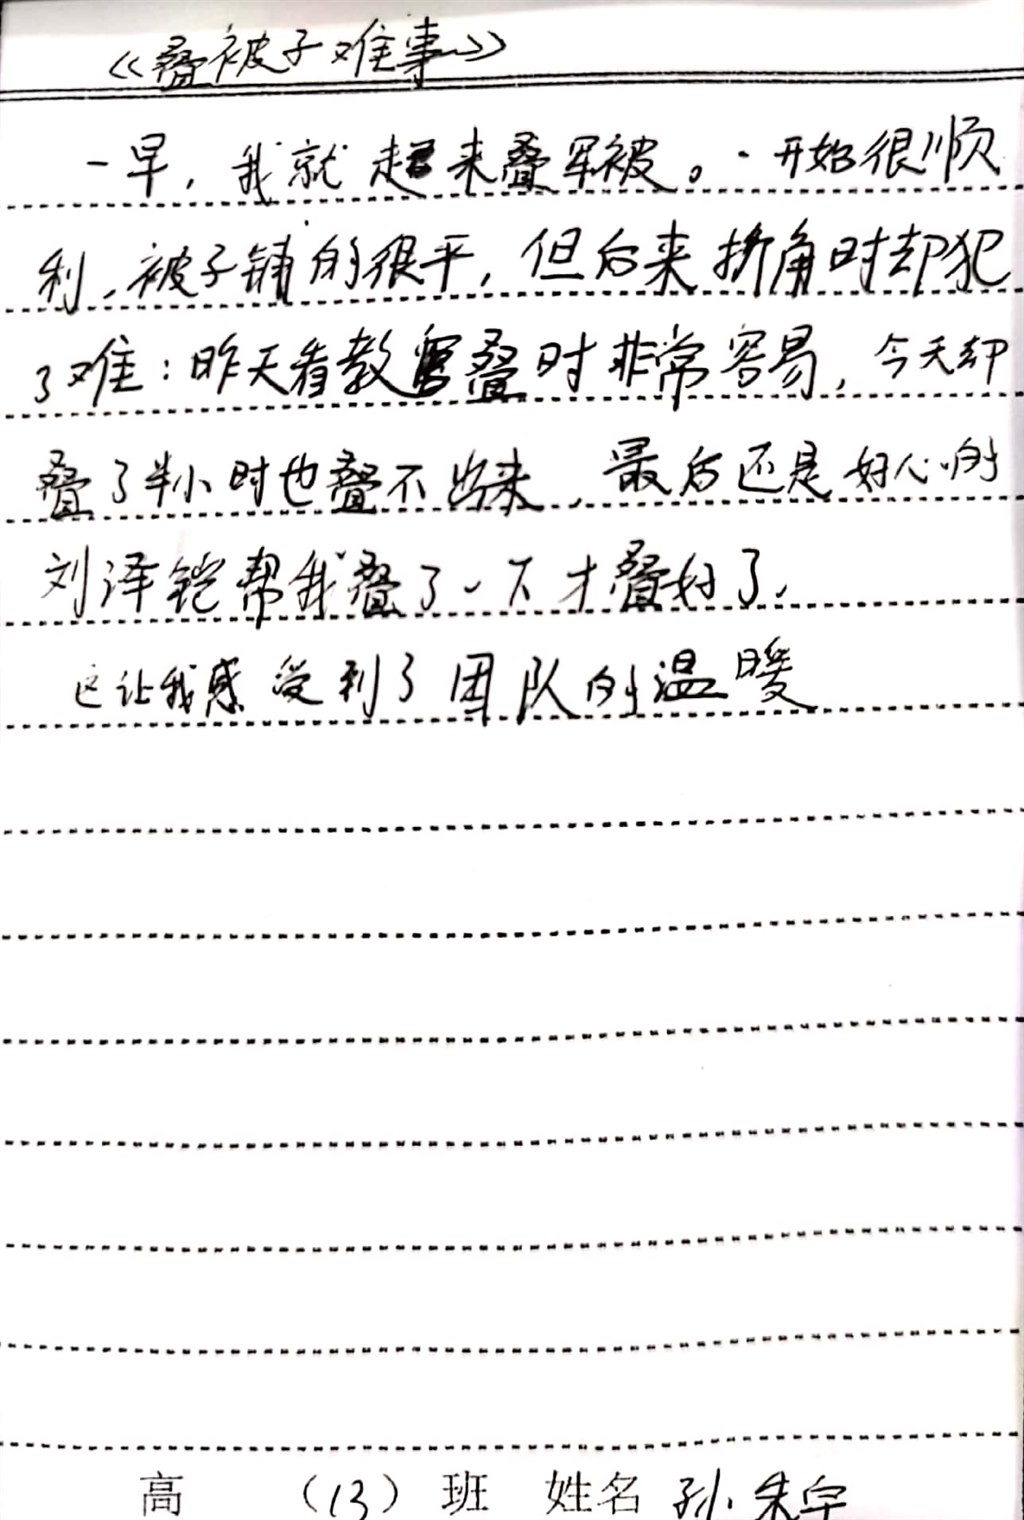 《叠被子难事》
一早，我就起来叠军被。一开始很顺
利，被子铺的很平，但后来折角时却犯
了难：昨天看教官叠时非常容易，今天却
叠了半小时也叠不出来，最后还是好心的
刘泽铠帮我叠了一下才叠好了，
这让我感受到了团队的温暖
高 （13）班 姓名 孙朱宇